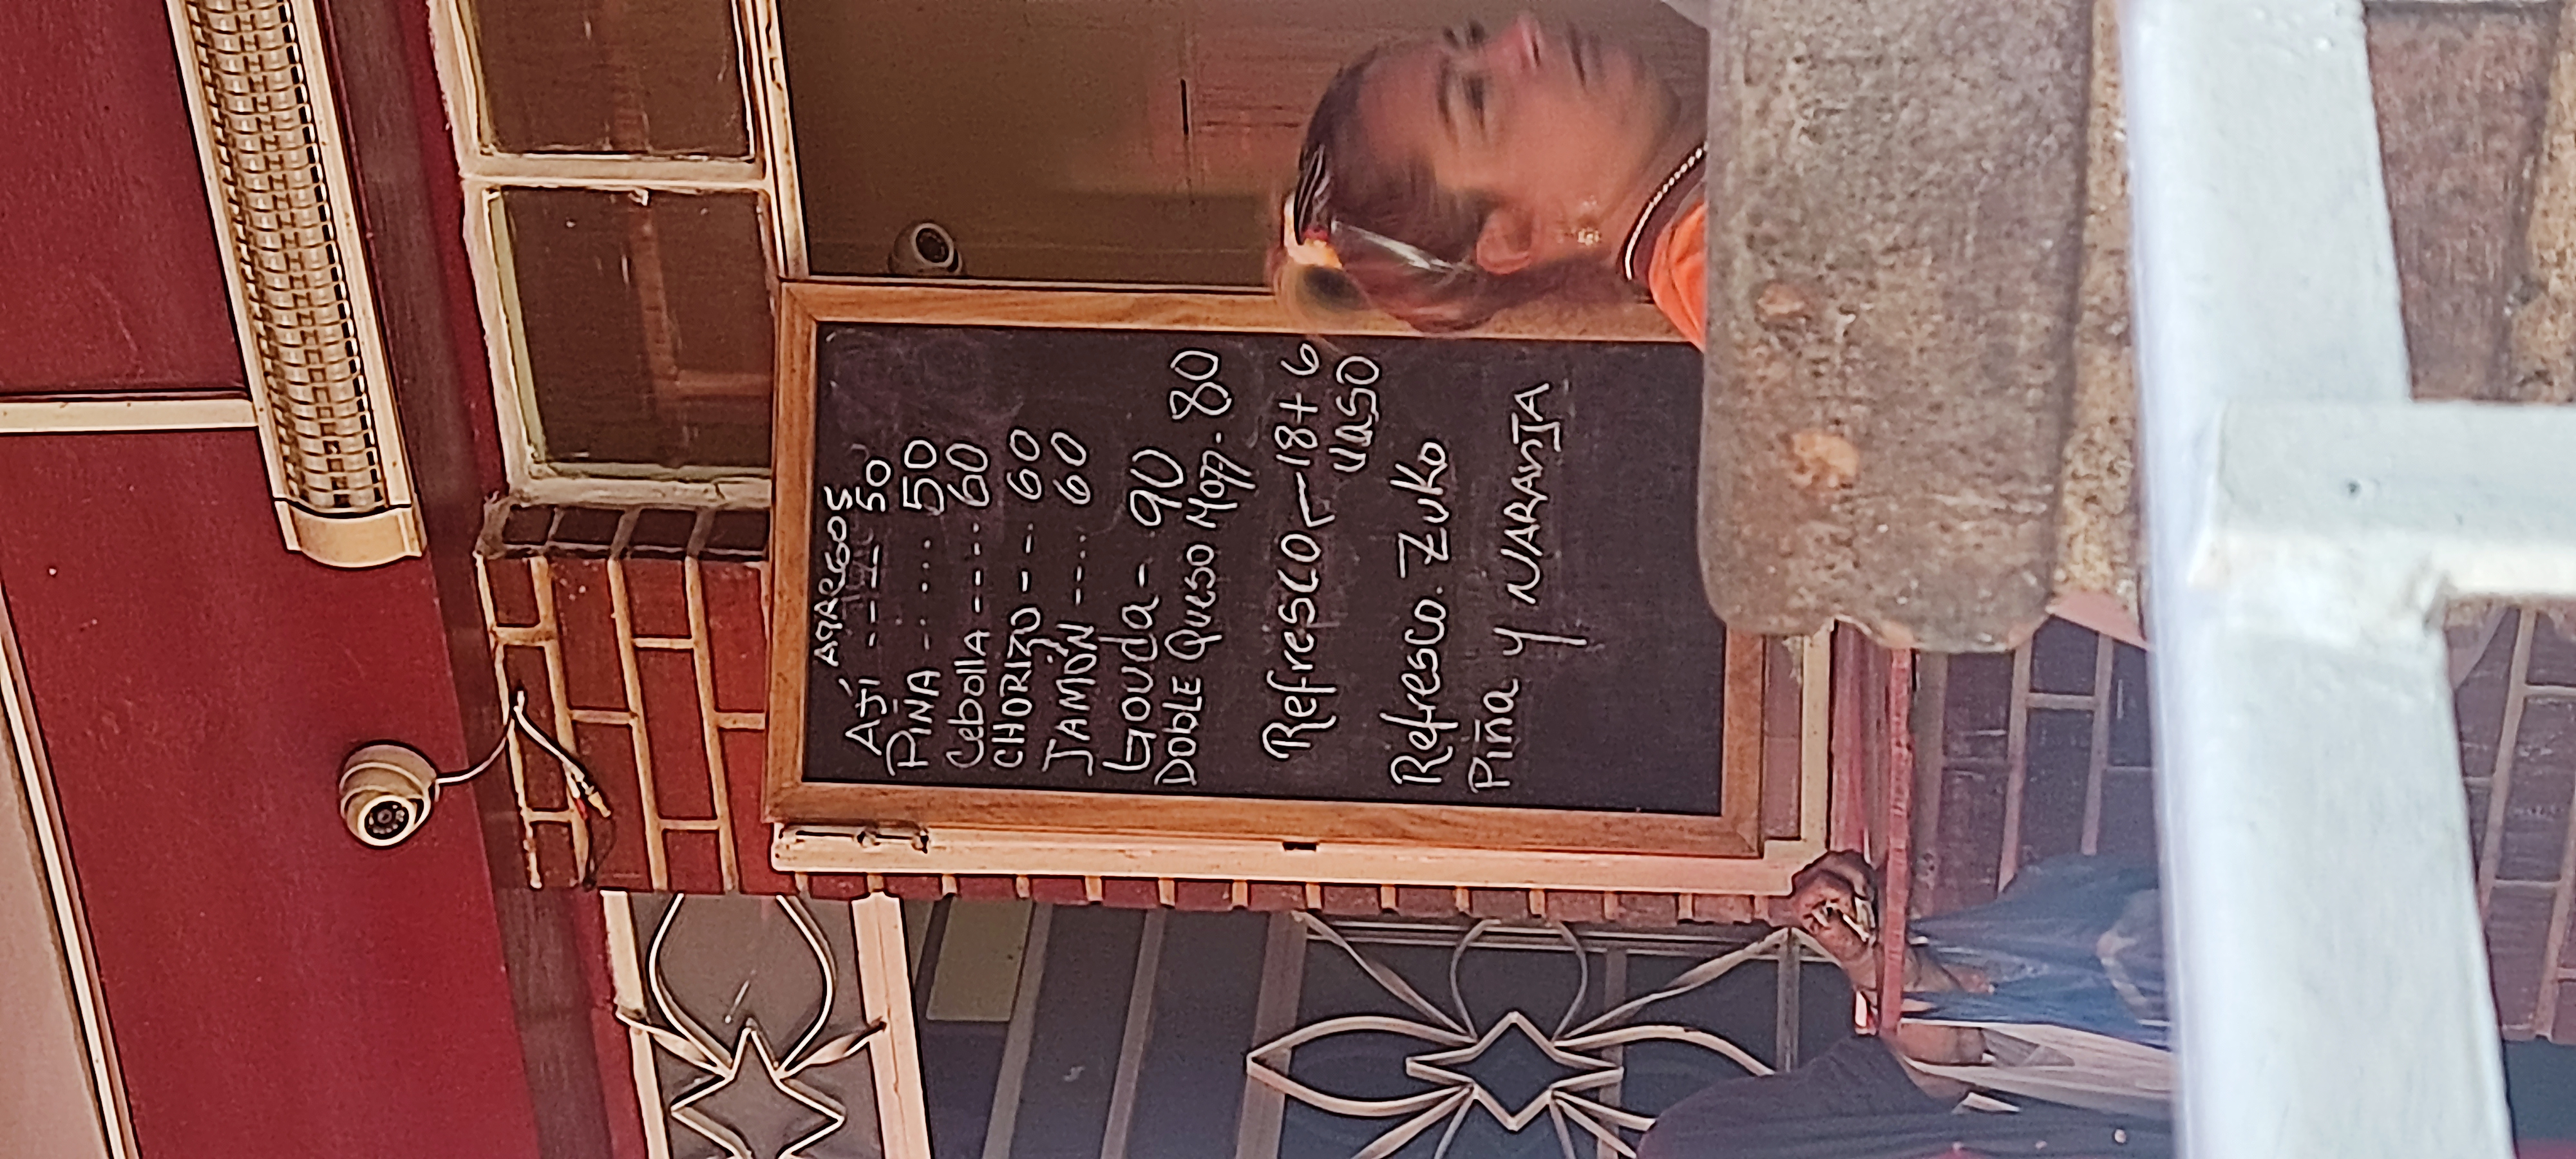 AGREGOS
AJÍ ---- 50
PIÑA ----- 50
Cebolla ---- 60
CHORIZO --- 60
JAMÓN ---- 60
Gouda - 90
DOBLE QUESO Mozz - 80
Refresco - 18 + 6
VASO
Refresco. Zuko
Piña y NARANJA